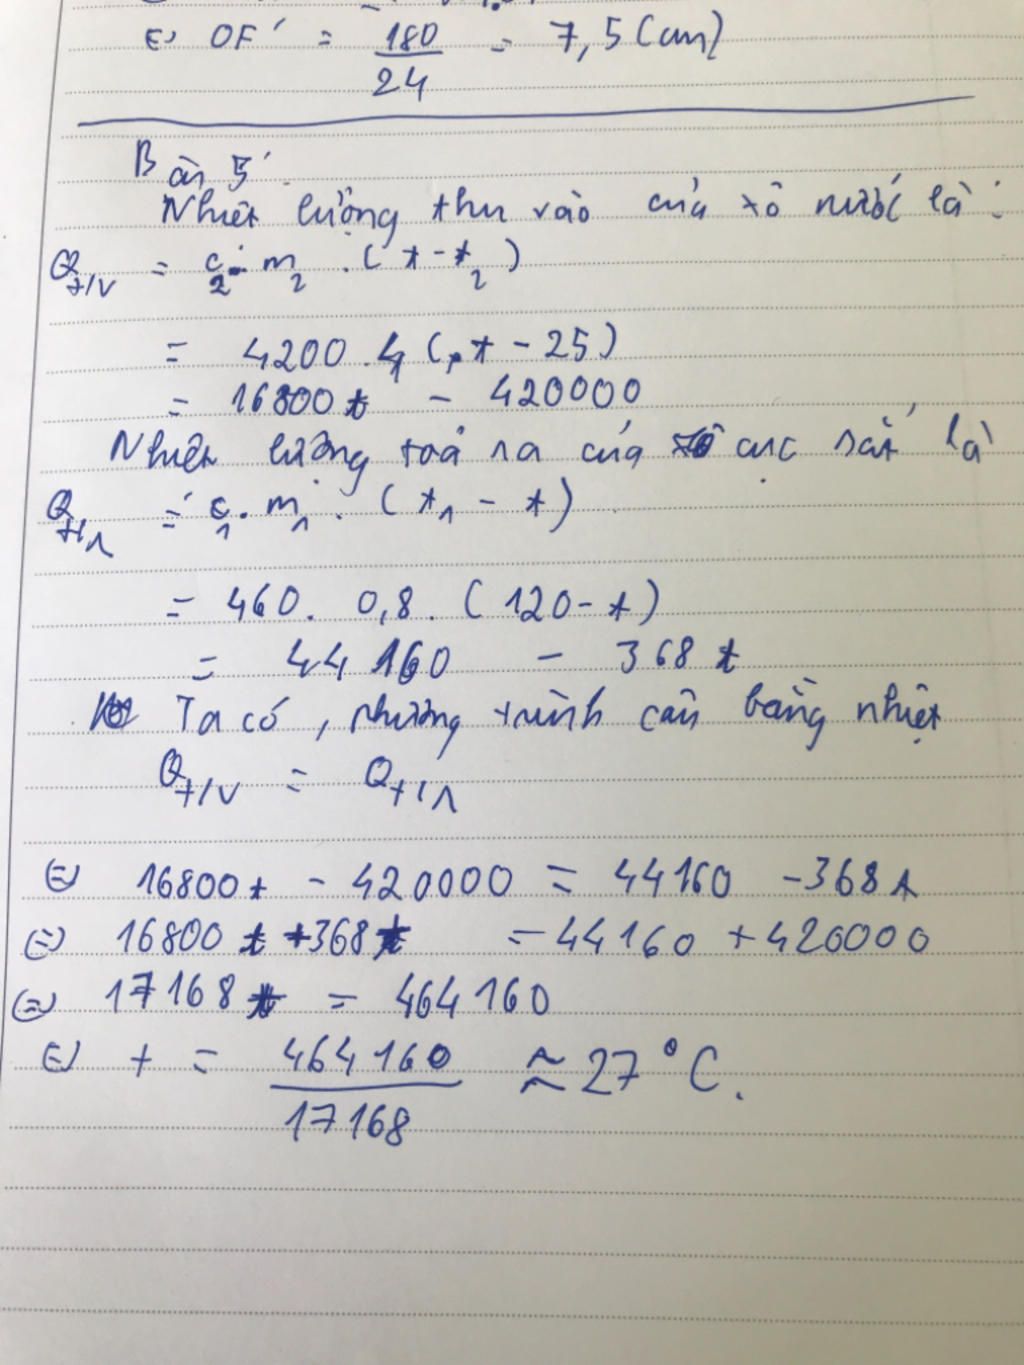 ⇔ OF' = 180/24 = 7,5 (cm)
Bài 5
Nhiệt lượng thu vào của xô nước là :
Qt/v = c2 . m2 . ( t - t2 )
= 4200 . 4 ( t - 25 )
= 16800 t - 420000
Nhiệt lượng toả ra của cục sắt là
Qt/r = c1 . m1 . ( t1 - t )
= 460 . 0,8 . ( 120 - t )
= 44160 - 368 t
Ta có , phương trình cân bằng nhiệt
Qt/v = Qt/r
⇔ 16800 t - 420000 = 44160 - 368 t
⇔ 16800 t + 368 t = 44160 + 420000
⇔ 17168 t = 464160
⇔ t = 464160/17168 ≈ 27 °C.